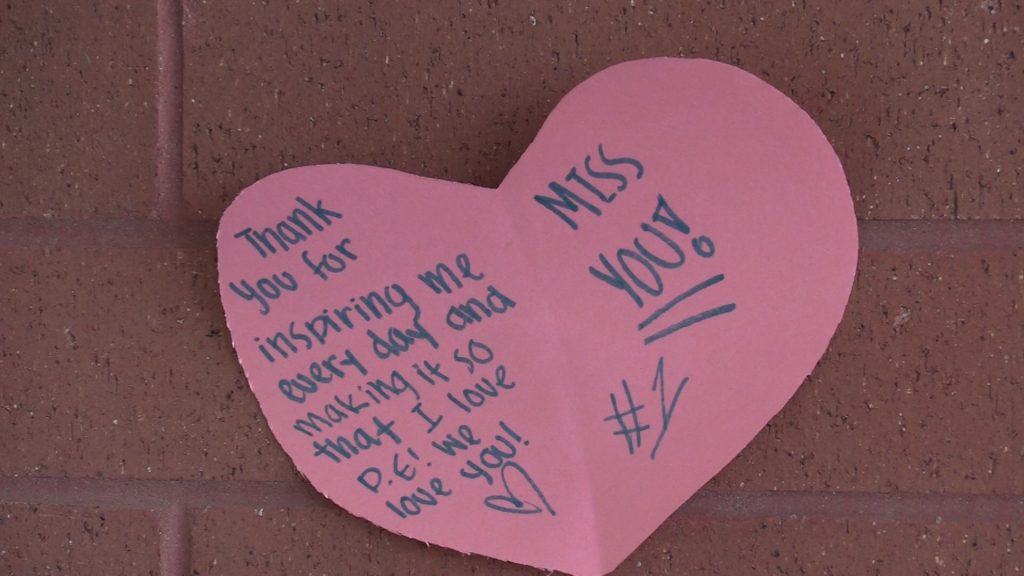 Thank
you for
inspiring me
every day and
making it so
that I love
P.E! We
love you!
MISS
YOU!
#1